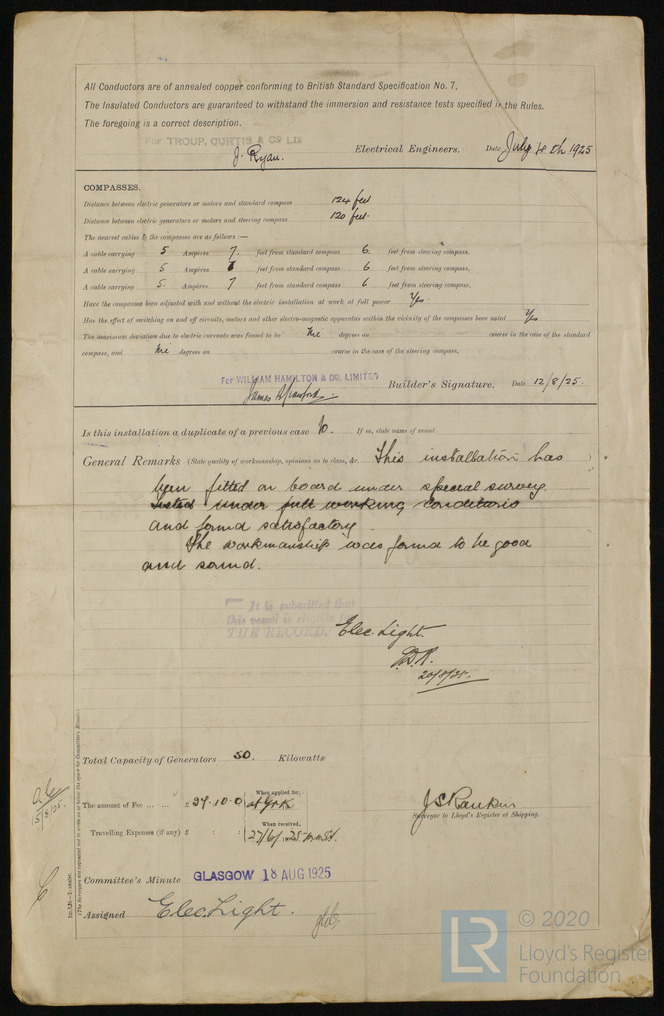 All Conductors are of annealed copper conforming to British Standard Specification No. 7.
The Insulated Conductors are guaranteed to withstand the immersion and resistance tests specified in the Rules.
The foregoing is a correct description.
For TROUP, CURTIS & Co Ltd
J. Ryan. Electrical Engineers. Date July 4th 1925
COMPASSES.
Distance between electric generators or motors and standard compass 124 feet
Distance between electric generators or motors and steering compass 120 feet
The nearest cables to the compasses are as follows:—
A cable carrying 5 Ampères 7. feet from standard compass 6. feet from steering compass.
A cable carrying 5 Ampères feet from standard compass 6 feet from steering compass.
A cable carrying 5. Ampères 7 feet from standard compass 6 feet from steering compass.
Have the compasses been adjusted with and without the electric installation at work at full power Yes.
Has the effect of switching on and off circuits, motors and other electro-magnetic apparatus within the vicinity of the compasses been noted Yes
The maximum deviation due to electric currents was found to be degrees on course in the case of the standard
compass, and degrees on course in the case of the steering compass.
For WILLIAM HAMILTON & CO. LIMITED
James Builder's Signature. Date 12/8/25.
Is this installation a duplicate of a previous case If so, state name of vessel
General Remarks (State quality of workmanship, opinions as to class, &c. This installation has
been fitted on board under special survey
tested under full working conditions
and found satisfactory.
The workmanship was found to be good
and sound.
It is submitted that
this vessel is eligible
THE RECORD. Elec. Light.
20/8/25.
Total Capacity of Generators 50. Kilowatts
The amount of Fee ... ... £ 37.10.0 When applied for,
J S Rankin
Surveyor to Lloyd's Register of Shipping.
Travelling Expenses (if any) £ : : When received,
Committee's Minute GLASGOW 18 AUG 1925
Assigned Elec. Light.
(The Surveyors are requested not to write on or below the space for Committee's Minute.)
LR © 2020
Lloyd's Register
Foundation